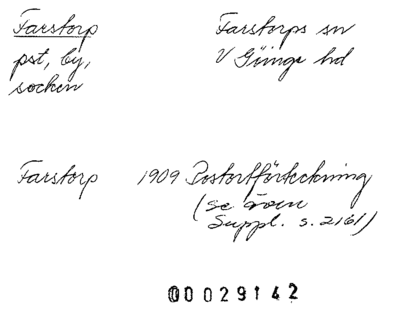 Farstorp
pst, by,
socken
Farstorps sn
V Göinge hd
Farstorp 1909 Postortförteckning
(se även
Suppl. s. 2161)
00029142